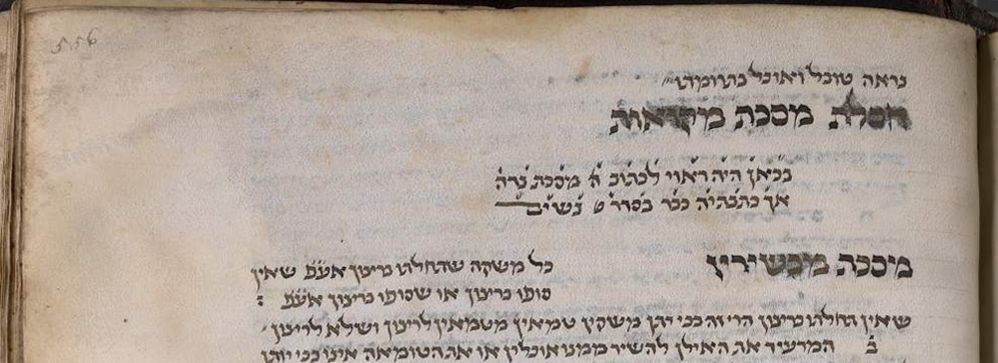 556
נראה טובל ואוכל בתרומתו
חסלת מסכת מקואות
בכאן היה ראוי לכתוב מסכת נדה
אך כתבתיה כבר בסדר נשים
מסכת מכשירין
כל משקה שתחלתו לרצון אע״פ שאין
סופו לרצון או שסופו לרצון אע״פ :
שאין תחלתו לרצון הרי זה בכי יותן משקין טמאין מטמאין לרצון ושלא לרצון
ב המרעיד את האילן להשיר ממנו אוכלין או את הטומאה אינו בכי יותן